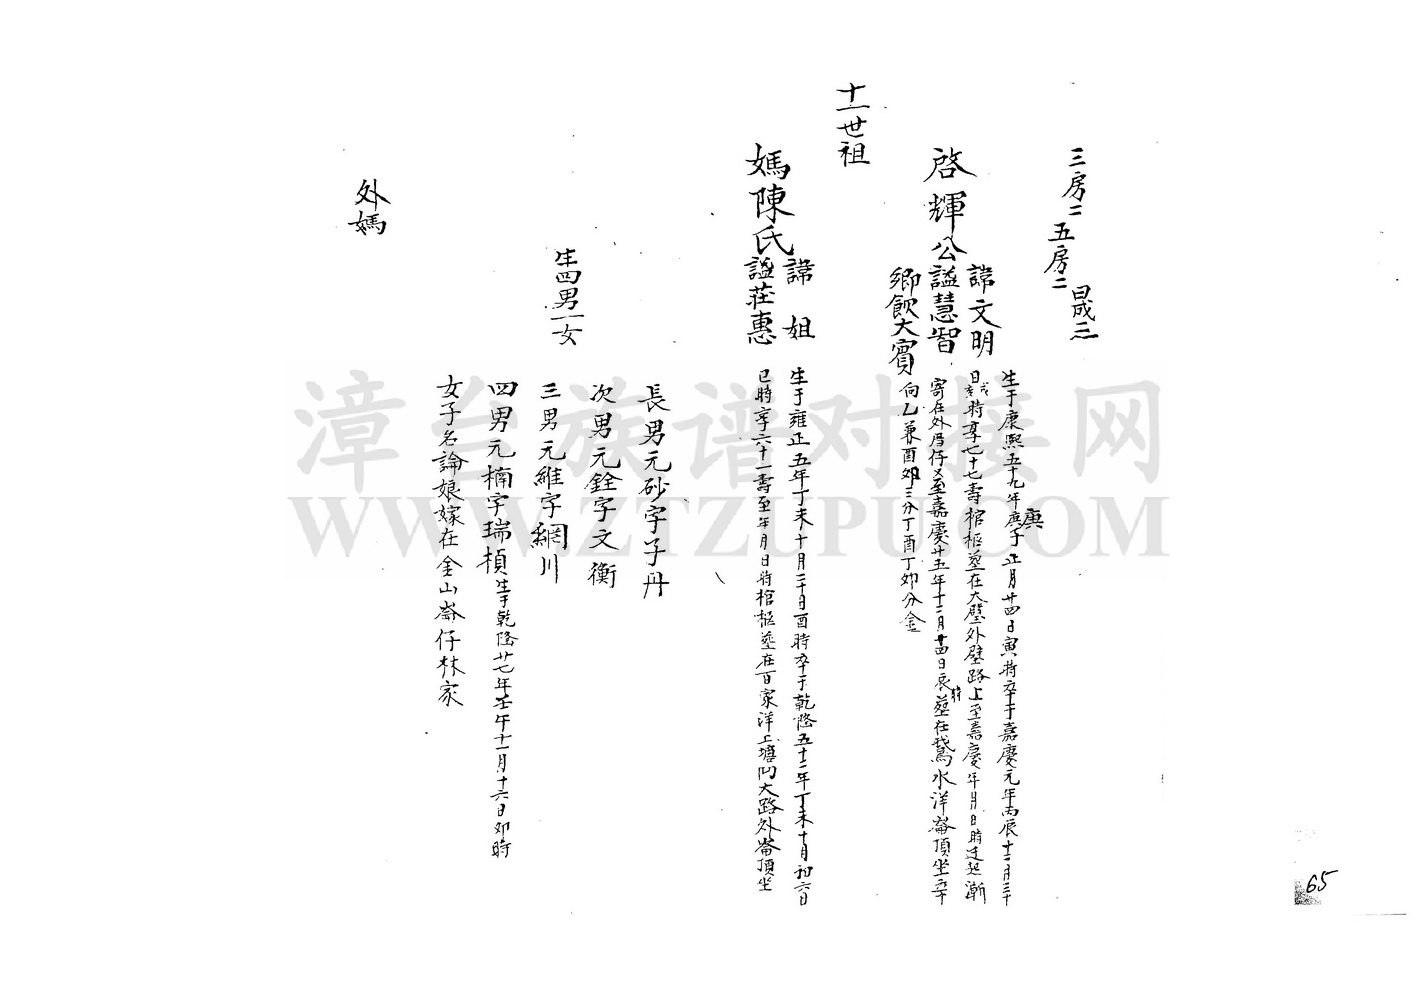 三房二
五房二
曰成三
十一世祖
啓輝公
諱文明
謚慧智
鄉飲大賓
生于康熙五十九年庚子正月廿四日寅時卒于嘉慶元年丙辰十二月三十
庚
日戌亥時享七十七壽棺柩塟在大壁外壁路上至嘉慶年月日時迁起漸
寄在外厝仔又至嘉慶廿五年十二月廿四日辰時塟在鵞水洋崙頂坐辛
向乙兼酉卯三分丁酉丁卯分金
媽陳氏
諱姐
謚莊惠
生于雍正五年丁未十月二十日酉時卒于乾隆五十二年丁未十月初六日
已時享六十一壽至年月日時棺柩塟在百家洋上塘門大路外崙頂坐
生四男一女
長男元砂字子丹
次男元銓字文衡
三男元維字網川
四男元楠字瑞楨生于乾隆廿七年壬午十一月十六日卯時
女子名論娘嫁在金山崙仔林家
外媽
65
漳台族谱对接网
WWW.ZTZUPU.COM